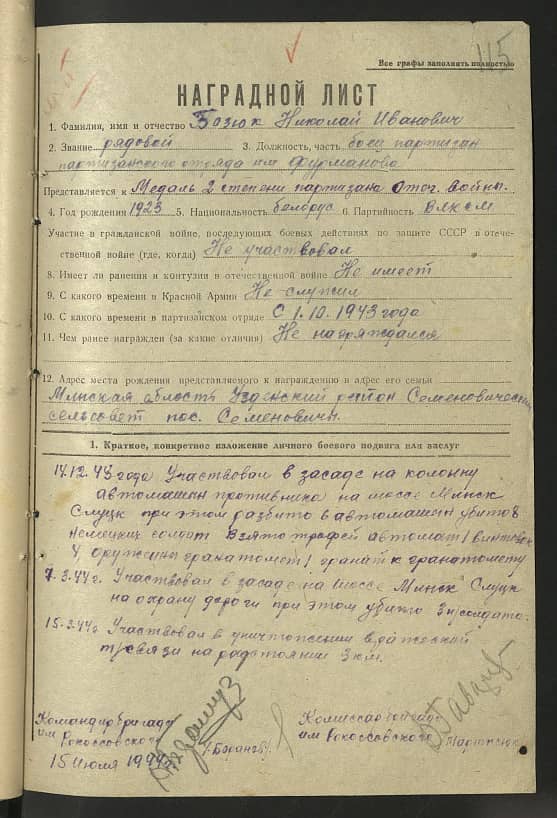 115
Все графы заполнять полностью
НАГРАДНОЙ ЛИСТ
1. Фамилия, имя и отчество Бозюк Николай Иванович
2. Звание рядовой 3. Должность, часть боец партизан
партизанского отряда им Фурманова
Представляется к Медаль 2 степени партизана Отеч. войны.
4. Год рождения 1923 5. Национальность белорус 6. Партийность ВЛКСМ
Участие в гражданской войне, последующих боевых действиях по защите СССР в отече-
ственной войне (где, когда) Не участвовал
8. Имеет ли ранения и контузии в отечественной войне Не имеет
9. С какого времени в Красной Армии Не служил
10. С какого времени в партизанском отряде С 1.10.1943 года
11. Чем ранее награжден (за какие отличия) Не награждался
12. Адрес места рождения представляемого к награждению и адрес его семьи
Минская область Узденский район Семеновический
сельсовет пос. Семеновичы.
1. Краткое, конкретное изложение личного боевого подвига или заслуг
14.12.43 года Участвовал в засаде на колонну
автомашин противника на шоссе Минск
Слуцк при этом разбито 8 автомашин убито 8
немецких солдат Взято трофей автомат 1 винтовок
4, гранатомет 1 гранат к гранатомету
7.3.44г. Участвовал в засаде на шоссе Минск Слуцк
на охрану дороги при этом убито 3 солдата.
15.3.44г Участвовал в уничтожении вражеской
связи на расстоянии 3 км.
Командир бригады Комиссар бригады
им Рокоссовского им Рокоссовского
15 июля 1944г